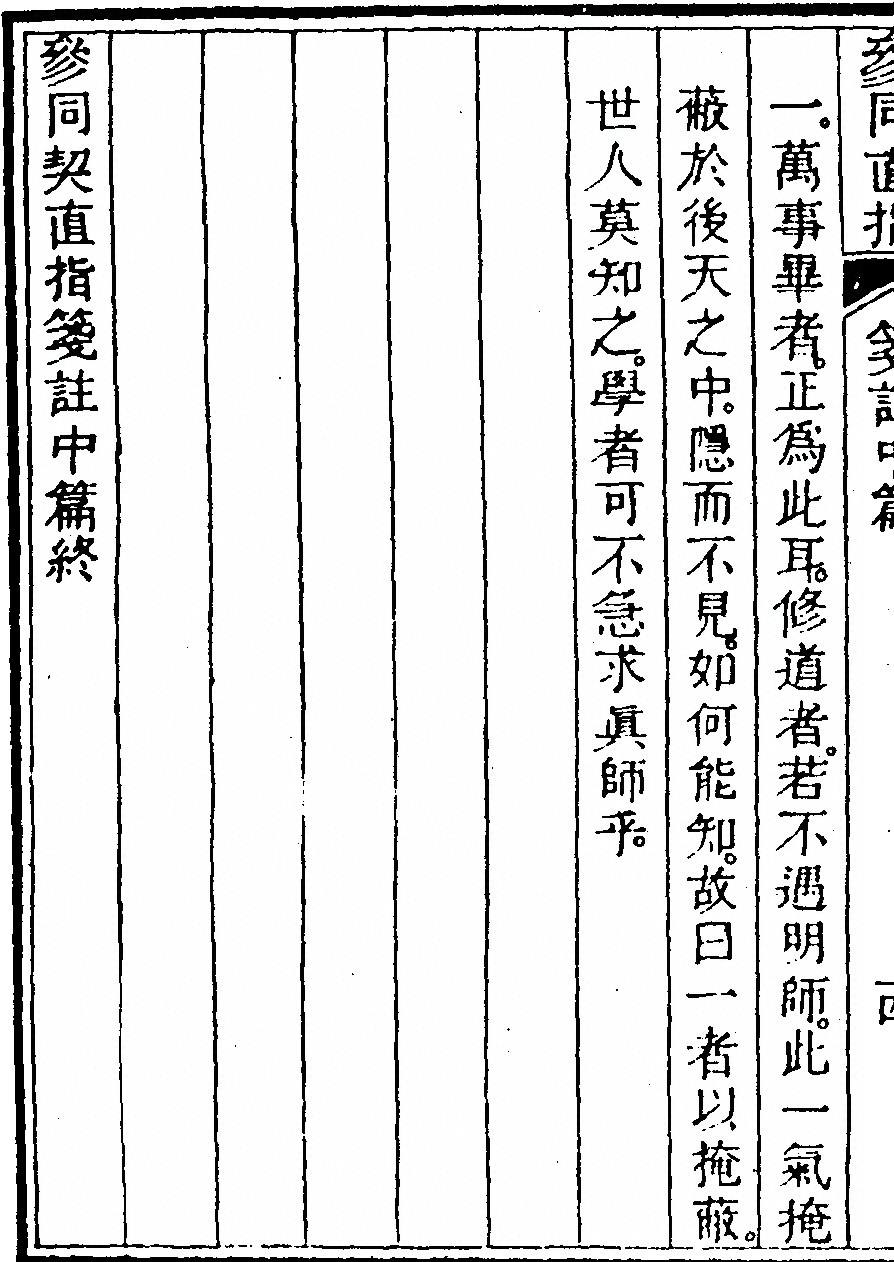 參同直指
箋註中篇
一。萬事畢者。正爲此耳。修道者。若不遇明師。此一氣掩
蔽於後天之中。隱而不見。如何能知。故曰一者以掩蔽。
世人莫知之。學者可不急求眞師乎。
參同契直指箋註中篇終